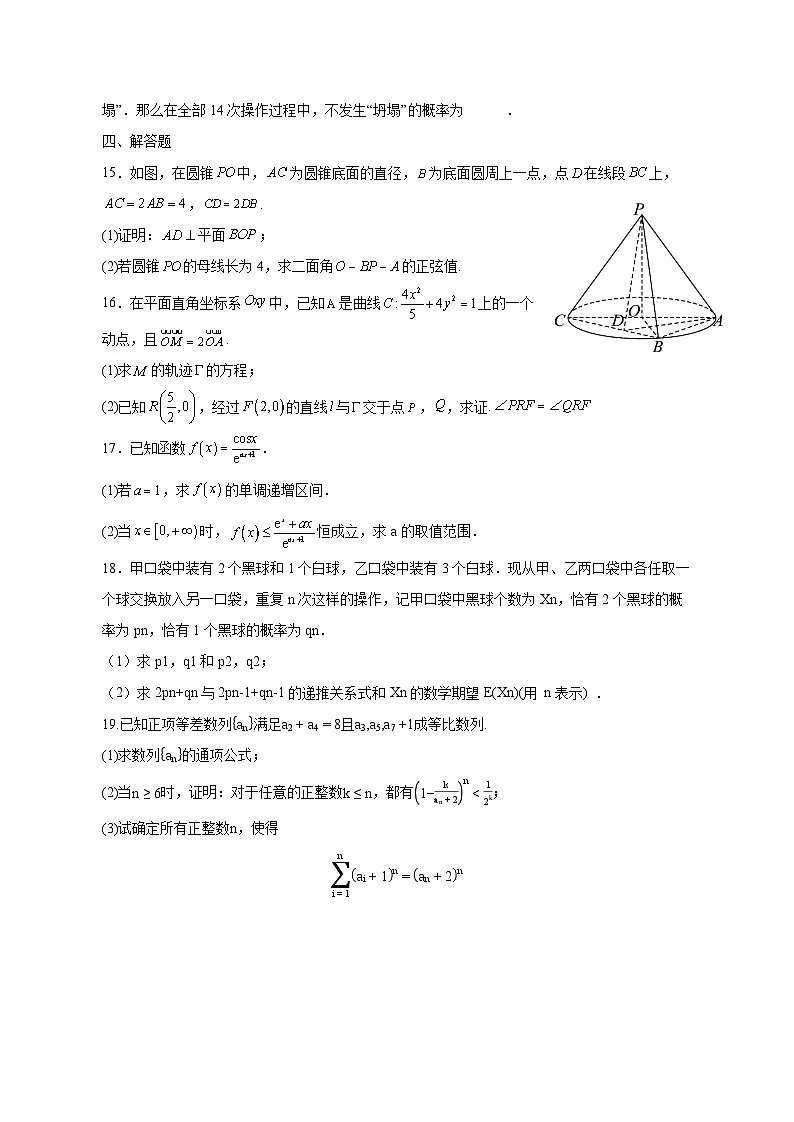 塌”．那么在全部14次操作过程中，不发生“坍塌”的概率为 ．
四、解答题
15．如图，在圆锥PO中，AC为圆锥底面的直径，B为底面圆周上一点，点D在线段BC上，
AC = 2AB = 4，CD = 2DB．
(1)证明：AD⊥平面BOP；
(2)若圆锥PO的母线长为4，求二面角O－BP－A的正弦值.
P
C
D
O
A
B
16．在平面直角坐标系Oxy中，已知A是曲线C:4x²/5+4y²=1上的一个
动点，且OM=2OA．
(1)求M的轨迹Γ的方程；
(2)已知R(5/2,0)，经过F(2,0)的直线l与Γ交于点P，Q，求证.∠PRF=∠QRF
17．已知函数f(x)=cosx/e^(ax+1)．
(1)若a=1，求f(x)的单调递增区间．
(2)当x∈[0,+∞)时，f(x)≤(e^x+ax)/e^(ax+1)恒成立，求a的取值范围．
18．甲口袋中装有2个黑球和1个白球，乙口袋中装有3个白球．现从甲、乙两口袋中各任取一
个球交换放入另一口袋，重复n次这样的操作，记甲口袋中黑球个数为Xn，恰有2个黑球的概
率为pn，恰有1个黑球的概率为qn．
（1）求p1，q1和p2，q2；
（2）求2pn+qn与2pn-1+qn-1的递推关系式和Xn的数学期望E(Xn)(用 n表示)．
19.已知正项等差数列{aₙ}满足a₂ + a₄ = 8且a₃,a₅,a₇ +1成等比数列.
(1)求数列{aₙ}的通项公式；
(2)当n ≥ 6时，证明：对于任意的正整数k ≤ n，都有(1−k/(aₙ+2))ⁿ < 1/2ᵏ；
(3)试确定所有正整数n，使得
∑_{i=1}^{n}(aᵢ + 1)ⁿ = (aₙ + 2)ⁿ